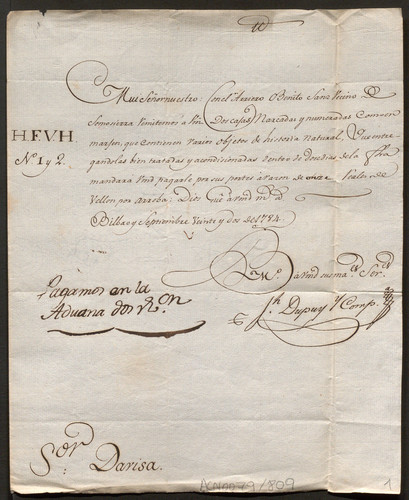 Mui Señor nuestro: Con el Arriero Benito Sanz
Senovirza remitimos a Vm Dos cajas Marcadas y numeradas Como en
H.F.V.H.
marjen, que contienen varios objetos de historia natural, Que entre
Nº 1 y 2.
gandolas bien tratadas y acondicionadas dentro de doce dias de la fha
mandara Vmd pagarle por sus portes a razon de onze reales de
Vellon por arroba; Dios gue a vmd ms as
Bilbao y Septiembre Veinte y dos de 1784.
Pagamos en la
Aduana dos rs on.
Dupuy y Comp.
Sor Darisa.
ACN0079/809
1